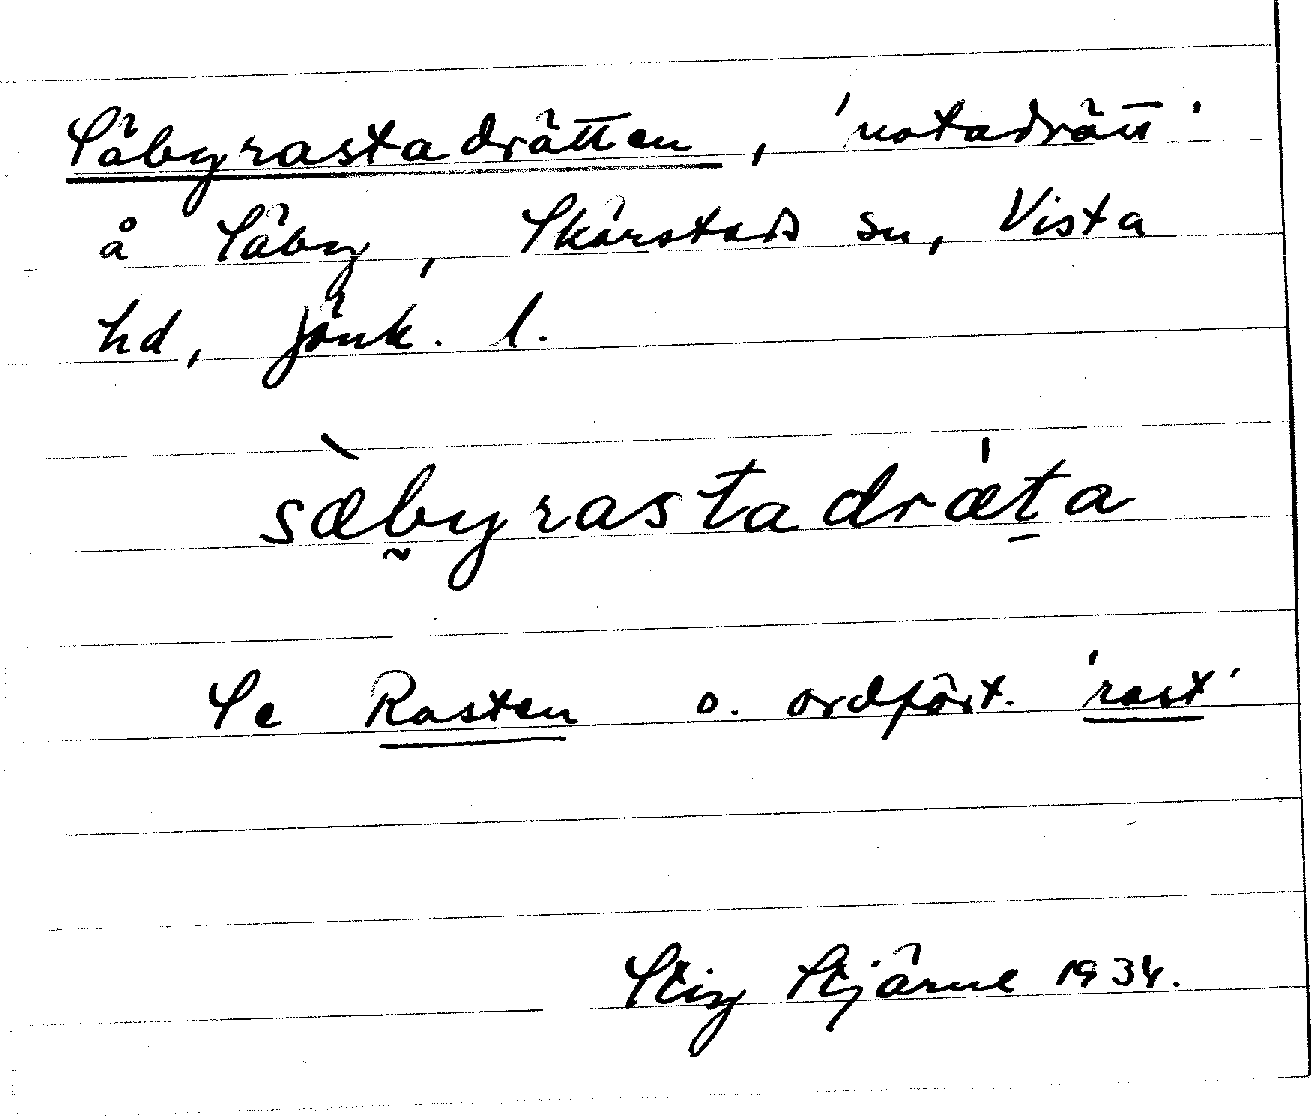 Säbyrastadrätten, 'notadrätt'
å Säby, Skärstads sn, Vista
hd, Jönk. l.
sæ̀b̰yrastadrǽṯa
Se Rasten o. ordfört. 'rast'
Stig Stjärne 1934.